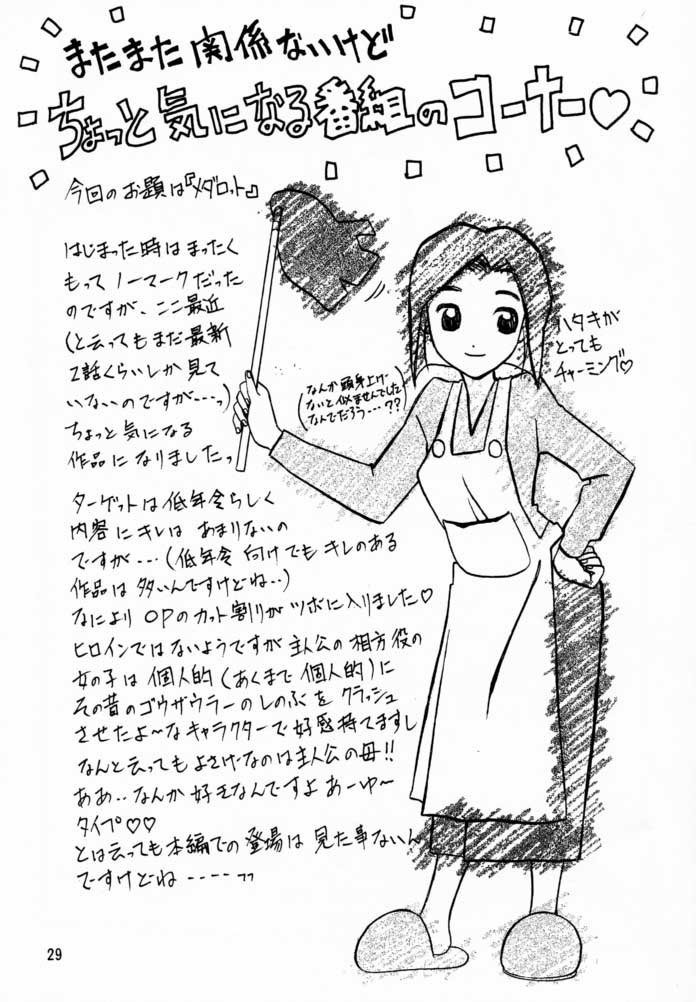 またまた関係ないけど
ちょっと気になる番組のコーナー♡
今回のお題は『メダロット』
はじまった時はまったく
もってノーマークだった
のですが、ここ最近
(と云ってもまだ最新
2話くらいしか見て
いないのですが…っ)
ちょっと気になる
作品になりましたっ
(なんか頭身上げ
ないと似ませんでした
なんでだろう…??)
ハタキが
とっても
チャーミング♡
ターゲットは低年令らしく
内容にキレは あまりないの
ですが…(低年令 向けでも キレのある
作品は 多いんですけどね‥)
なにより OPのカット割りが ツボに入りました♡
ヒロインではないようですが 主人公の 相方役の
女の子は 個人的(あくまで 個人的)に
その昔のゴウザウラーの しのぶを クラッシュ
させたよ〜なキャラクターで 好感持てますし
なんと云っても よさげなのは主人公の母!!
ああ‥なんか 好きなんですよ あーゆ〜
タイプ♡♡
とは云っても本編での 登場は 見た事ないん
ですけどね----っっ
29